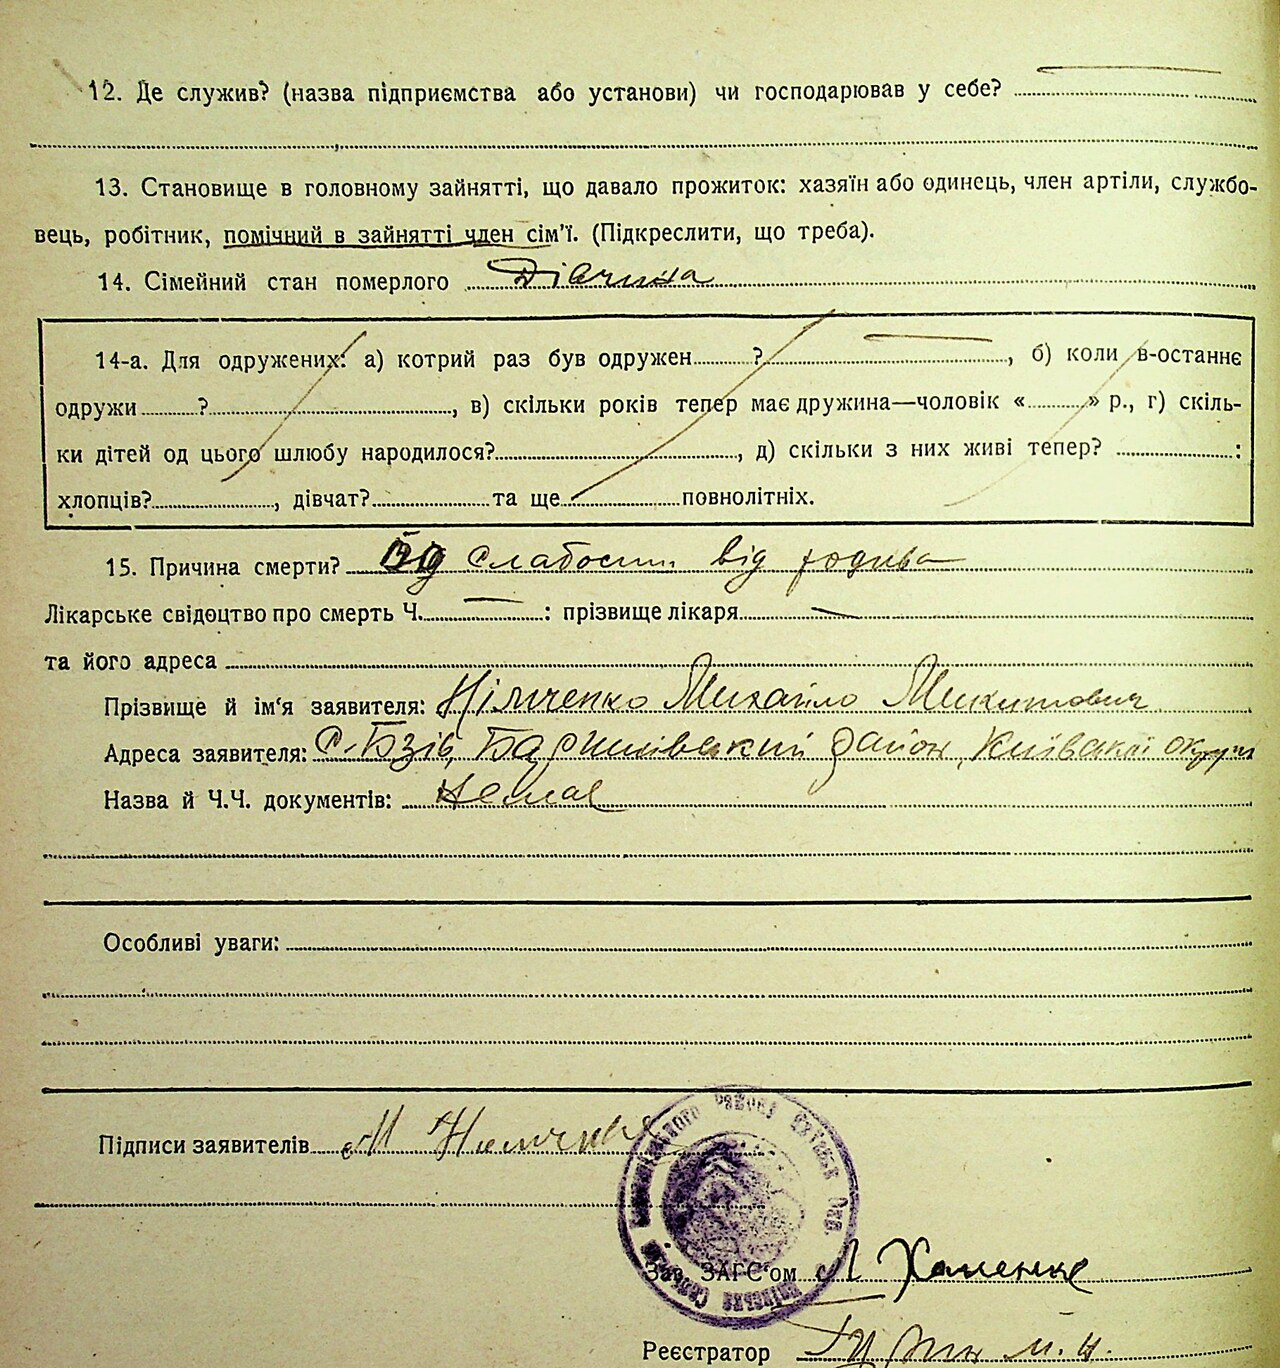 12. Де служив? (назва підприємства або установи) чи господарював у себе?
13. Становище в головному зайнятті, що давало прожиток: хазяїн або одинець, член артіли, службо-
вець, робітник, помічний в зайнятті член сім'ї. (Підкреслити, що треба).
14. Сімейний стан померлого Дівчина
14-а. Для одружених: а) котрий раз був одружен ?, б) коли в-останнє
одружи ?, в) скільки років тепер має дружина—чоловік « » р., г) скіль-
ки дітей од цього шлюбу народилося?, д) скільки з них живі тепер? :
хлопців?, дівчат? та ще повнолітніх.
15. Причина смерти? Від слабости від
Лікарське свідоцтво про смерть Ч. : прізвище лікаря
та його адреса
Прізвище й ім'я заявителя: Михайло Микитович
Адреса заявителя: с. Бзів, Баришівський район, Київської округи
Назва й Ч.Ч. документів: Немає
Особливі уваги:
Підписи заявителів М
Зав. ЗАГС'ом Хоменко
Реєстратор